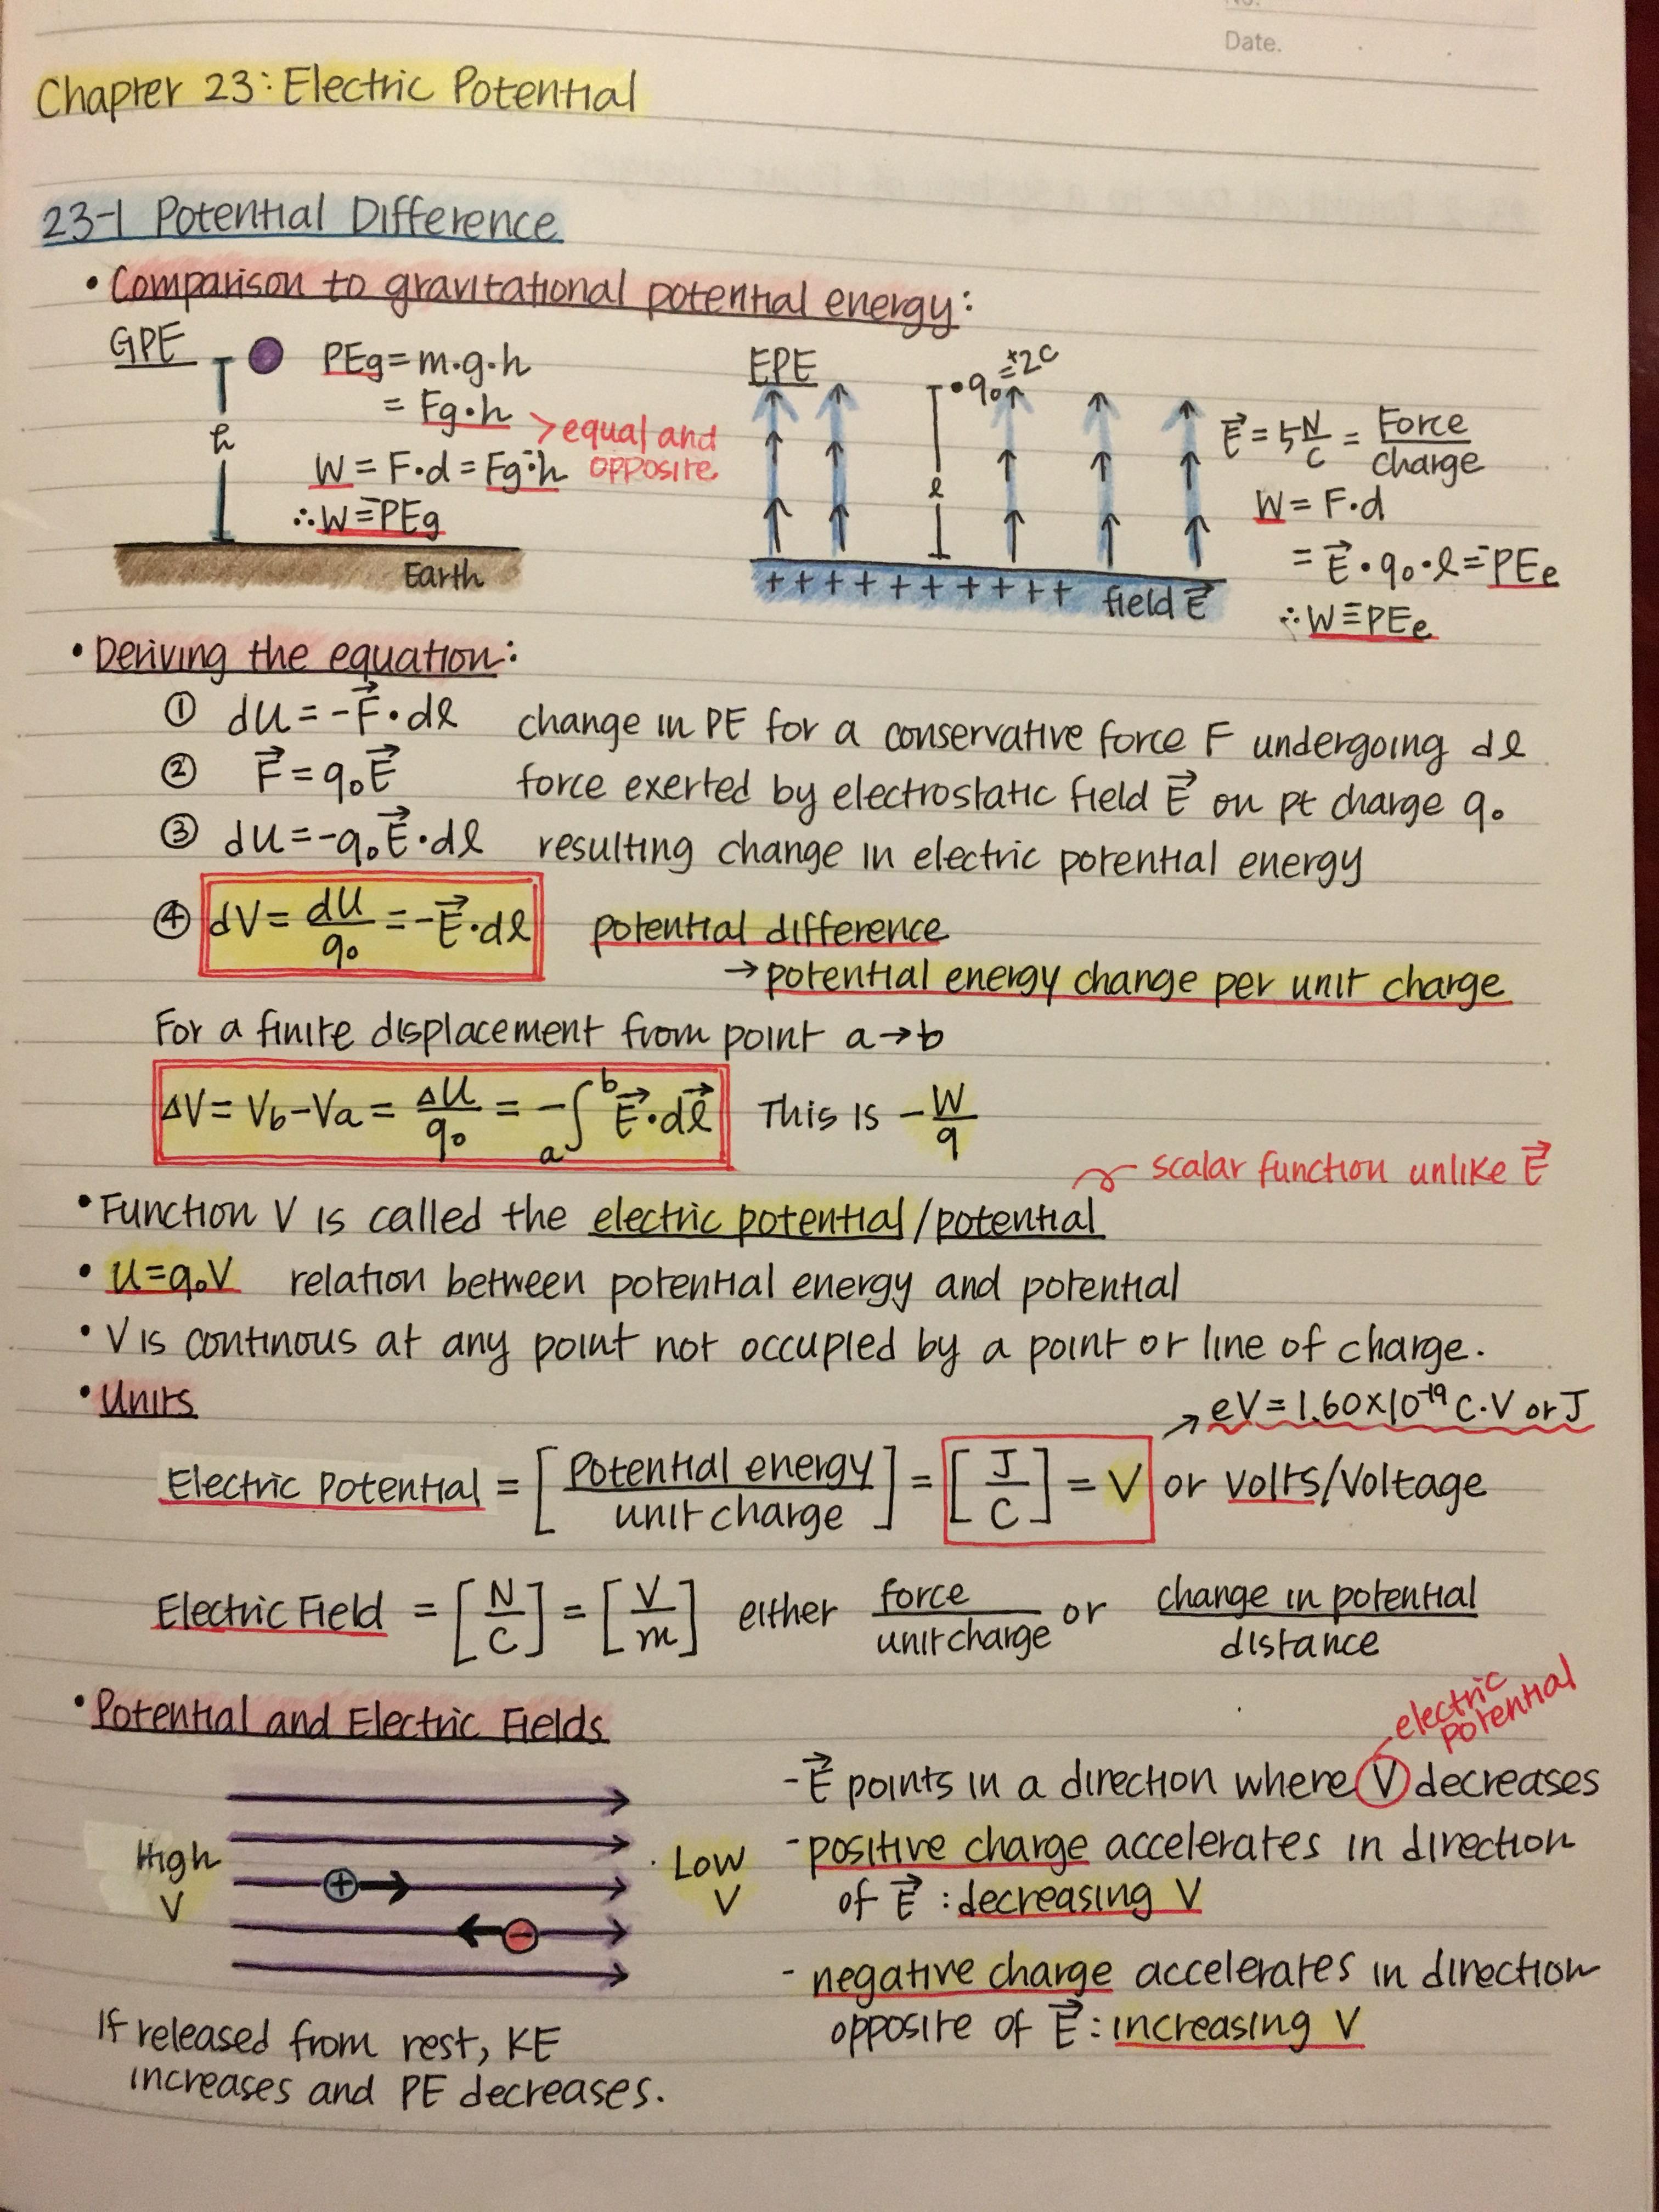 No.
Date.
Chapter 23: Electric Potential
23-1 Potential Difference
• Comparison to gravitational potential energy:
GPE
h
PEg = m·g·h
= Fg·h
W = F·d = Fg·⁻h
> equal and
opposite
∴ W = ⁻PEg
Earth
EPE
• q₀ = ⁺2C
l
+ + + + + + + + + + + field E⃗
E⃗ = 5 N/C = Force/charge
W = F·d
= E⃗·q₀·l = ⁻PEe
∴ W = ⁻PEe
• Deriving the equation:
① dU = -F⃗·dl change in PE for a conservative force F undergoing dl
② F⃗ = q₀E⃗ force exerted by electrostatic field E⃗ on pt charge q₀
③ dU = -q₀E⃗·dl resulting change in electric potential energy
④ dV = dU/q₀ = -E⃗·dl potential difference
→ potential energy change per unit charge
For a finite displacement from point a → b
ΔV = Vb - Va = ΔU/q₀ = -∫ₐᵇ E⃗·dl⃗ This is -W/q
scalar function unlike E⃗
• Function V is called the electric potential/potential
• U = q₀V relation between potential energy and potential
• V is continous at any point not occupied by a point or line of charge.
• Units
→ eV = 1.60×10⁻¹⁹ C·V or J
Electric Potential = [Potential energy/unit charge] = [J/C] = V or volts/Voltage
Electric Field = [N/C] = [V/m] either force/unit charge or change in potential/distance
• Potential and Electric Fields
electric
potential
High
V
+
-
Low
V
- E⃗ points in a direction where V decreases
- positive charge accelerates in direction
of E⃗ : decreasing V
- negative charge accelerates in direction
opposite of E⃗ : increasing V
If released from rest, KE
increases and PE decreases.